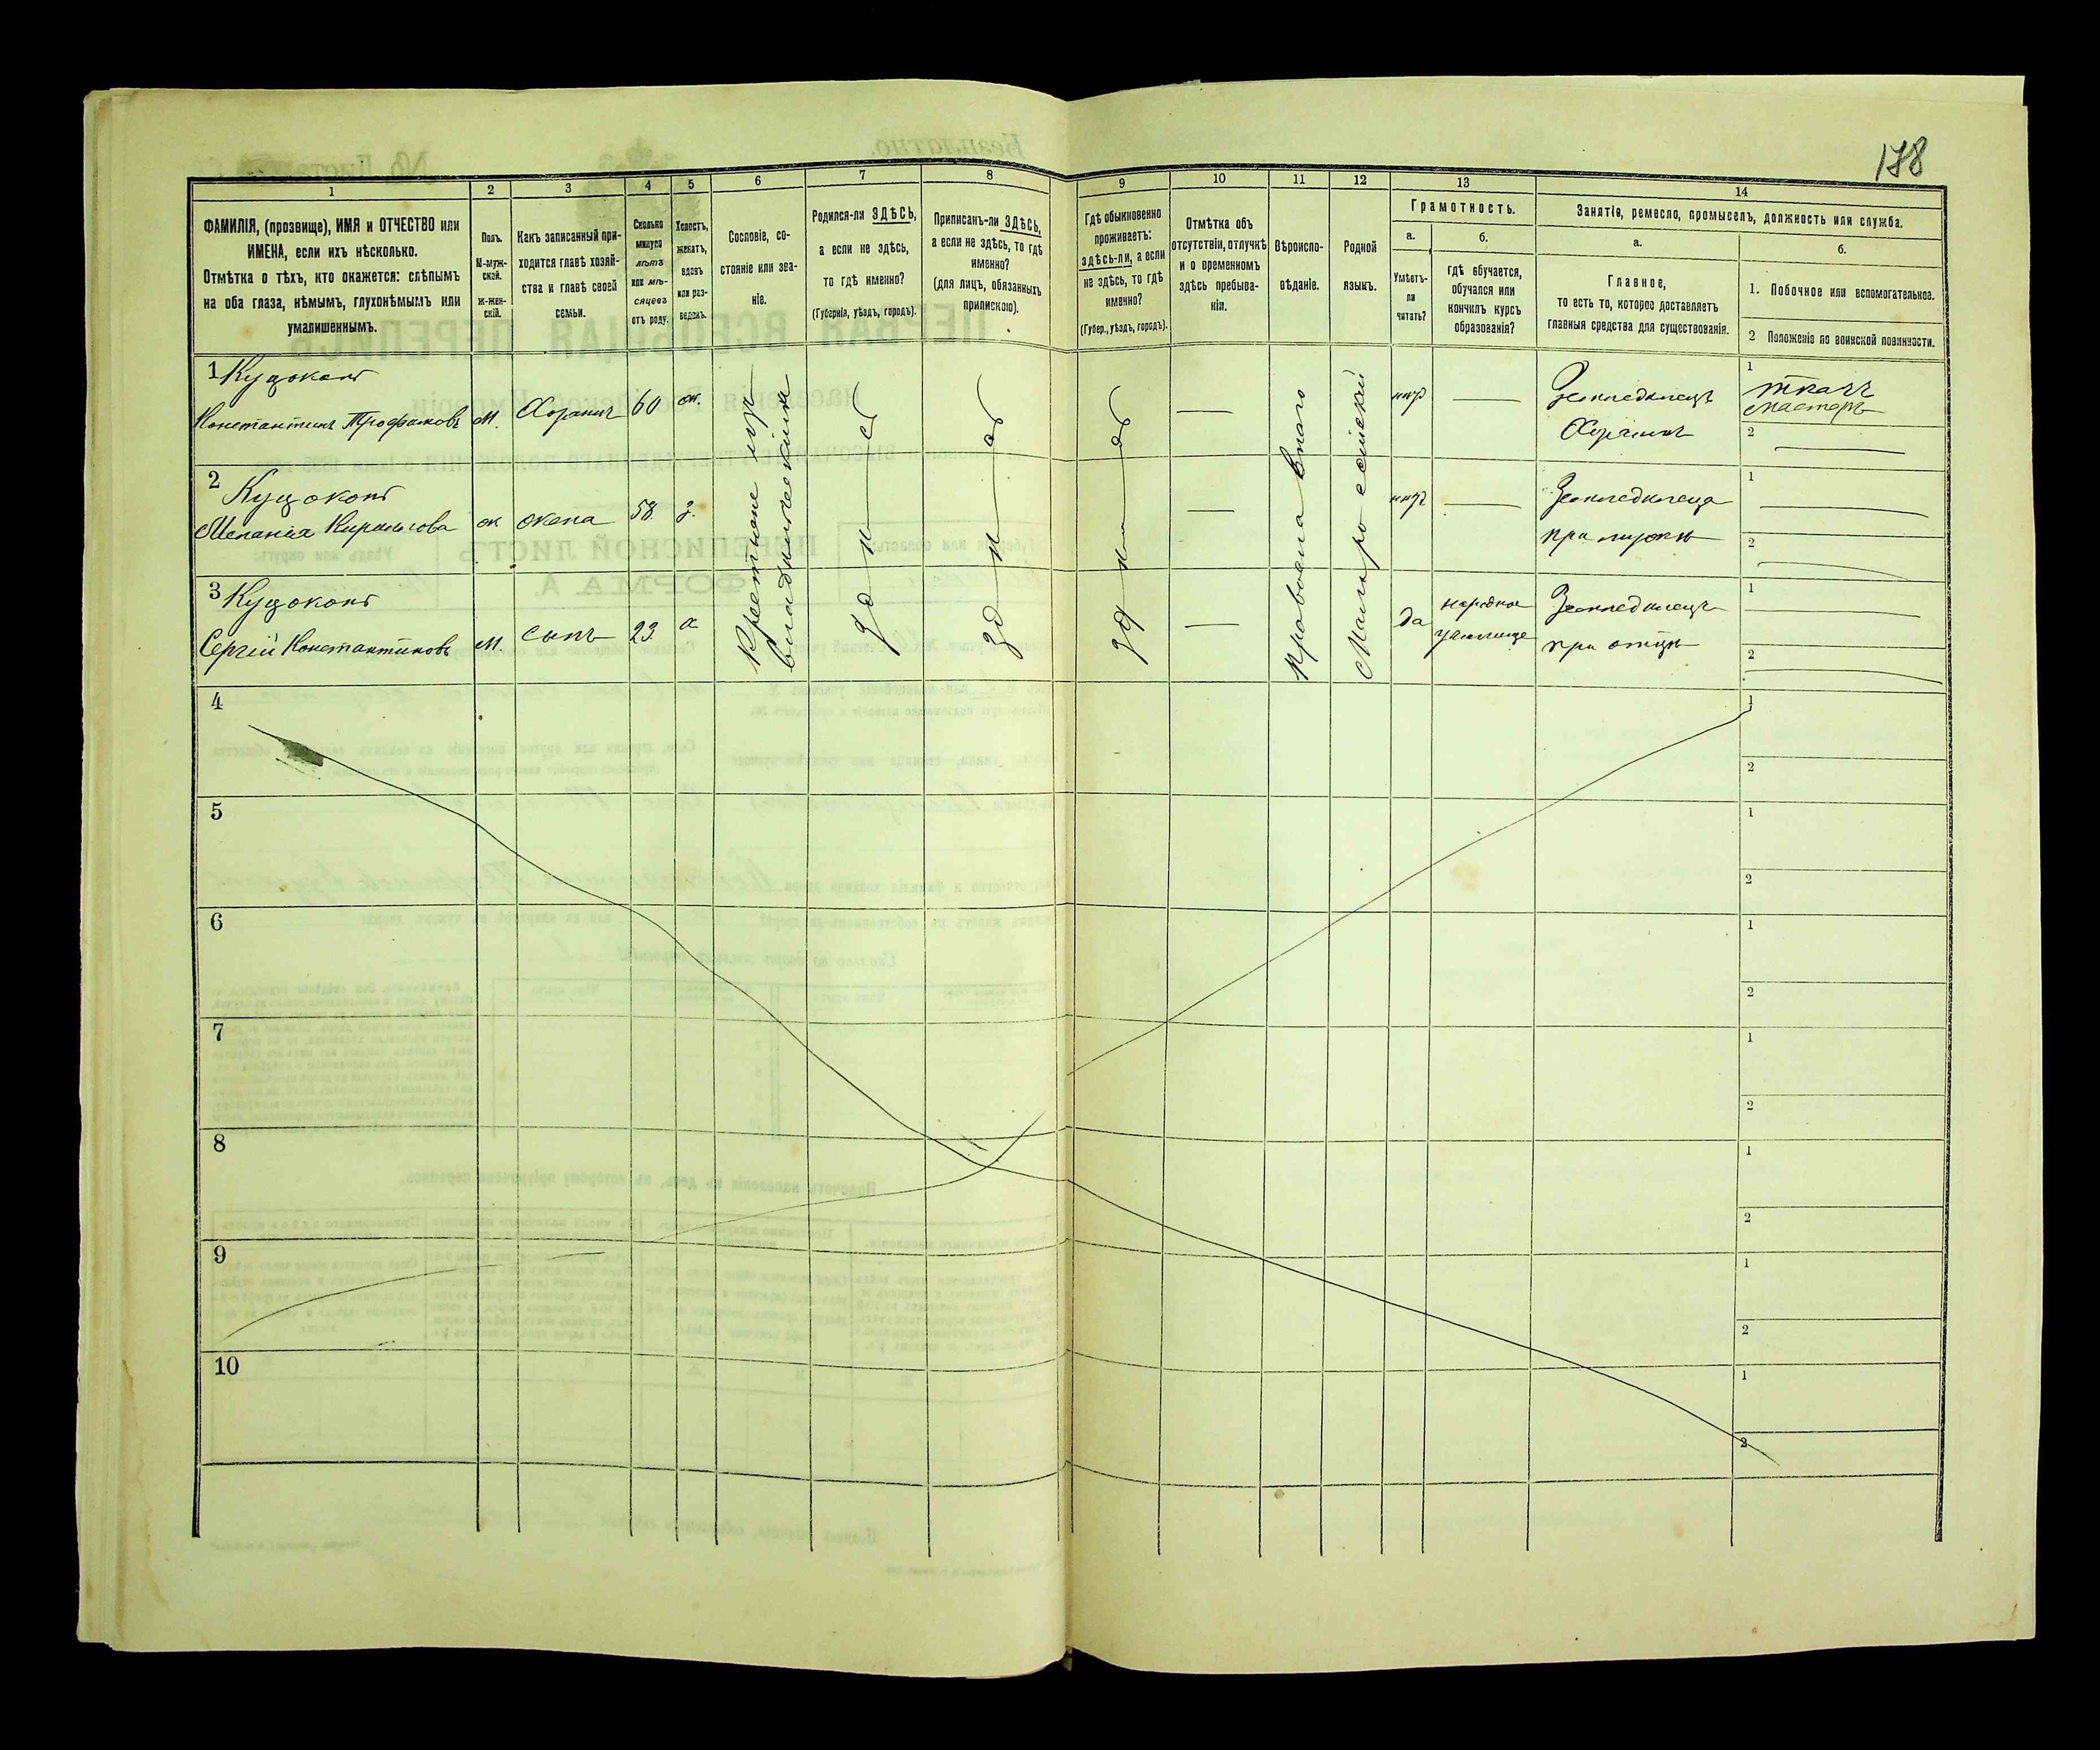 178
1
2
3
4
5
6
7
8
9
10
11
12
13
14
ФАМИЛІЯ, (прозвище), ИМЯ и ОТЧЕСТВО или
ИМЕНА, если ихъ нѣсколько.
Отмѣтка о тѣхъ, кто окажется: слѣпымъ
на оба глаза, нѣмымъ, глухонѣмымъ или
умалишеннымъ.
Полъ.
М-муж-
ской.
Ж-жен-
скій.
Какъ записанный при-
ходится главѣ хозяй-
ства и главѣ своей
семьи.
Сколько
минуло
лѣтъ
или мѣ-
сяцевъ
отъ роду.
Холостъ,
женатъ,
вдовъ
или раз-
веденъ.
Сословіе, со-
стояніе или зва-
ніе.
Родился-ли ЗДѢСЬ,
а если не здѣсь,
то гдѣ именно?
(Губернія, уѣздъ, городъ).
Приписанъ-ли ЗДѢСЬ,
а если не здѣсь, то гдѣ
именно?
(для лицъ, обязанныхъ
припискою).
Гдѣ обыкновенно
проживаетъ:
здѣсь-ли, а если
не здѣсь, то гдѣ
именно?
(Губер., уѣздъ, городъ).
Отмѣтка объ
отсутствіи, отлучкѣ
и о временномъ
здѣсь пребыва-
ніи.
Вѣроиспо-
вѣданіе.
Родной
языкъ.
Грамотность.
а.
Умѣетъ-
ли
читать?
б.
гдѣ обучается,
обучался или
кончилъ курсъ
образованія?
Занятіе, ремесло, промыселъ, должность или служба.
а.
Главное,
то есть то, которое доставляетъ
главныя средства для существованія.
б.
1. Побочное или вспомогательное.
2 Положеніе по воинской повинности.
1
Константинъ Трофимовъ М. Хозяинъ 60 ж.
Земледѣлецъ
Хозяинъ
1 ткачъ
мастеръ
2
2
Меланія Кирилова ж жена 58 з.
при мужѣ
1
2
3
Сергій Константиновъ М. сынъ 23 х
да народное
училище
Земледѣлецъ
при отцѣ
1
2
Крестьяне
здѣсь
здѣсь
здѣсь
Малороссійскій
4
1
2
5
1
2
6
1
2
7
1
2
8
1
2
9
1
2
10
1
2